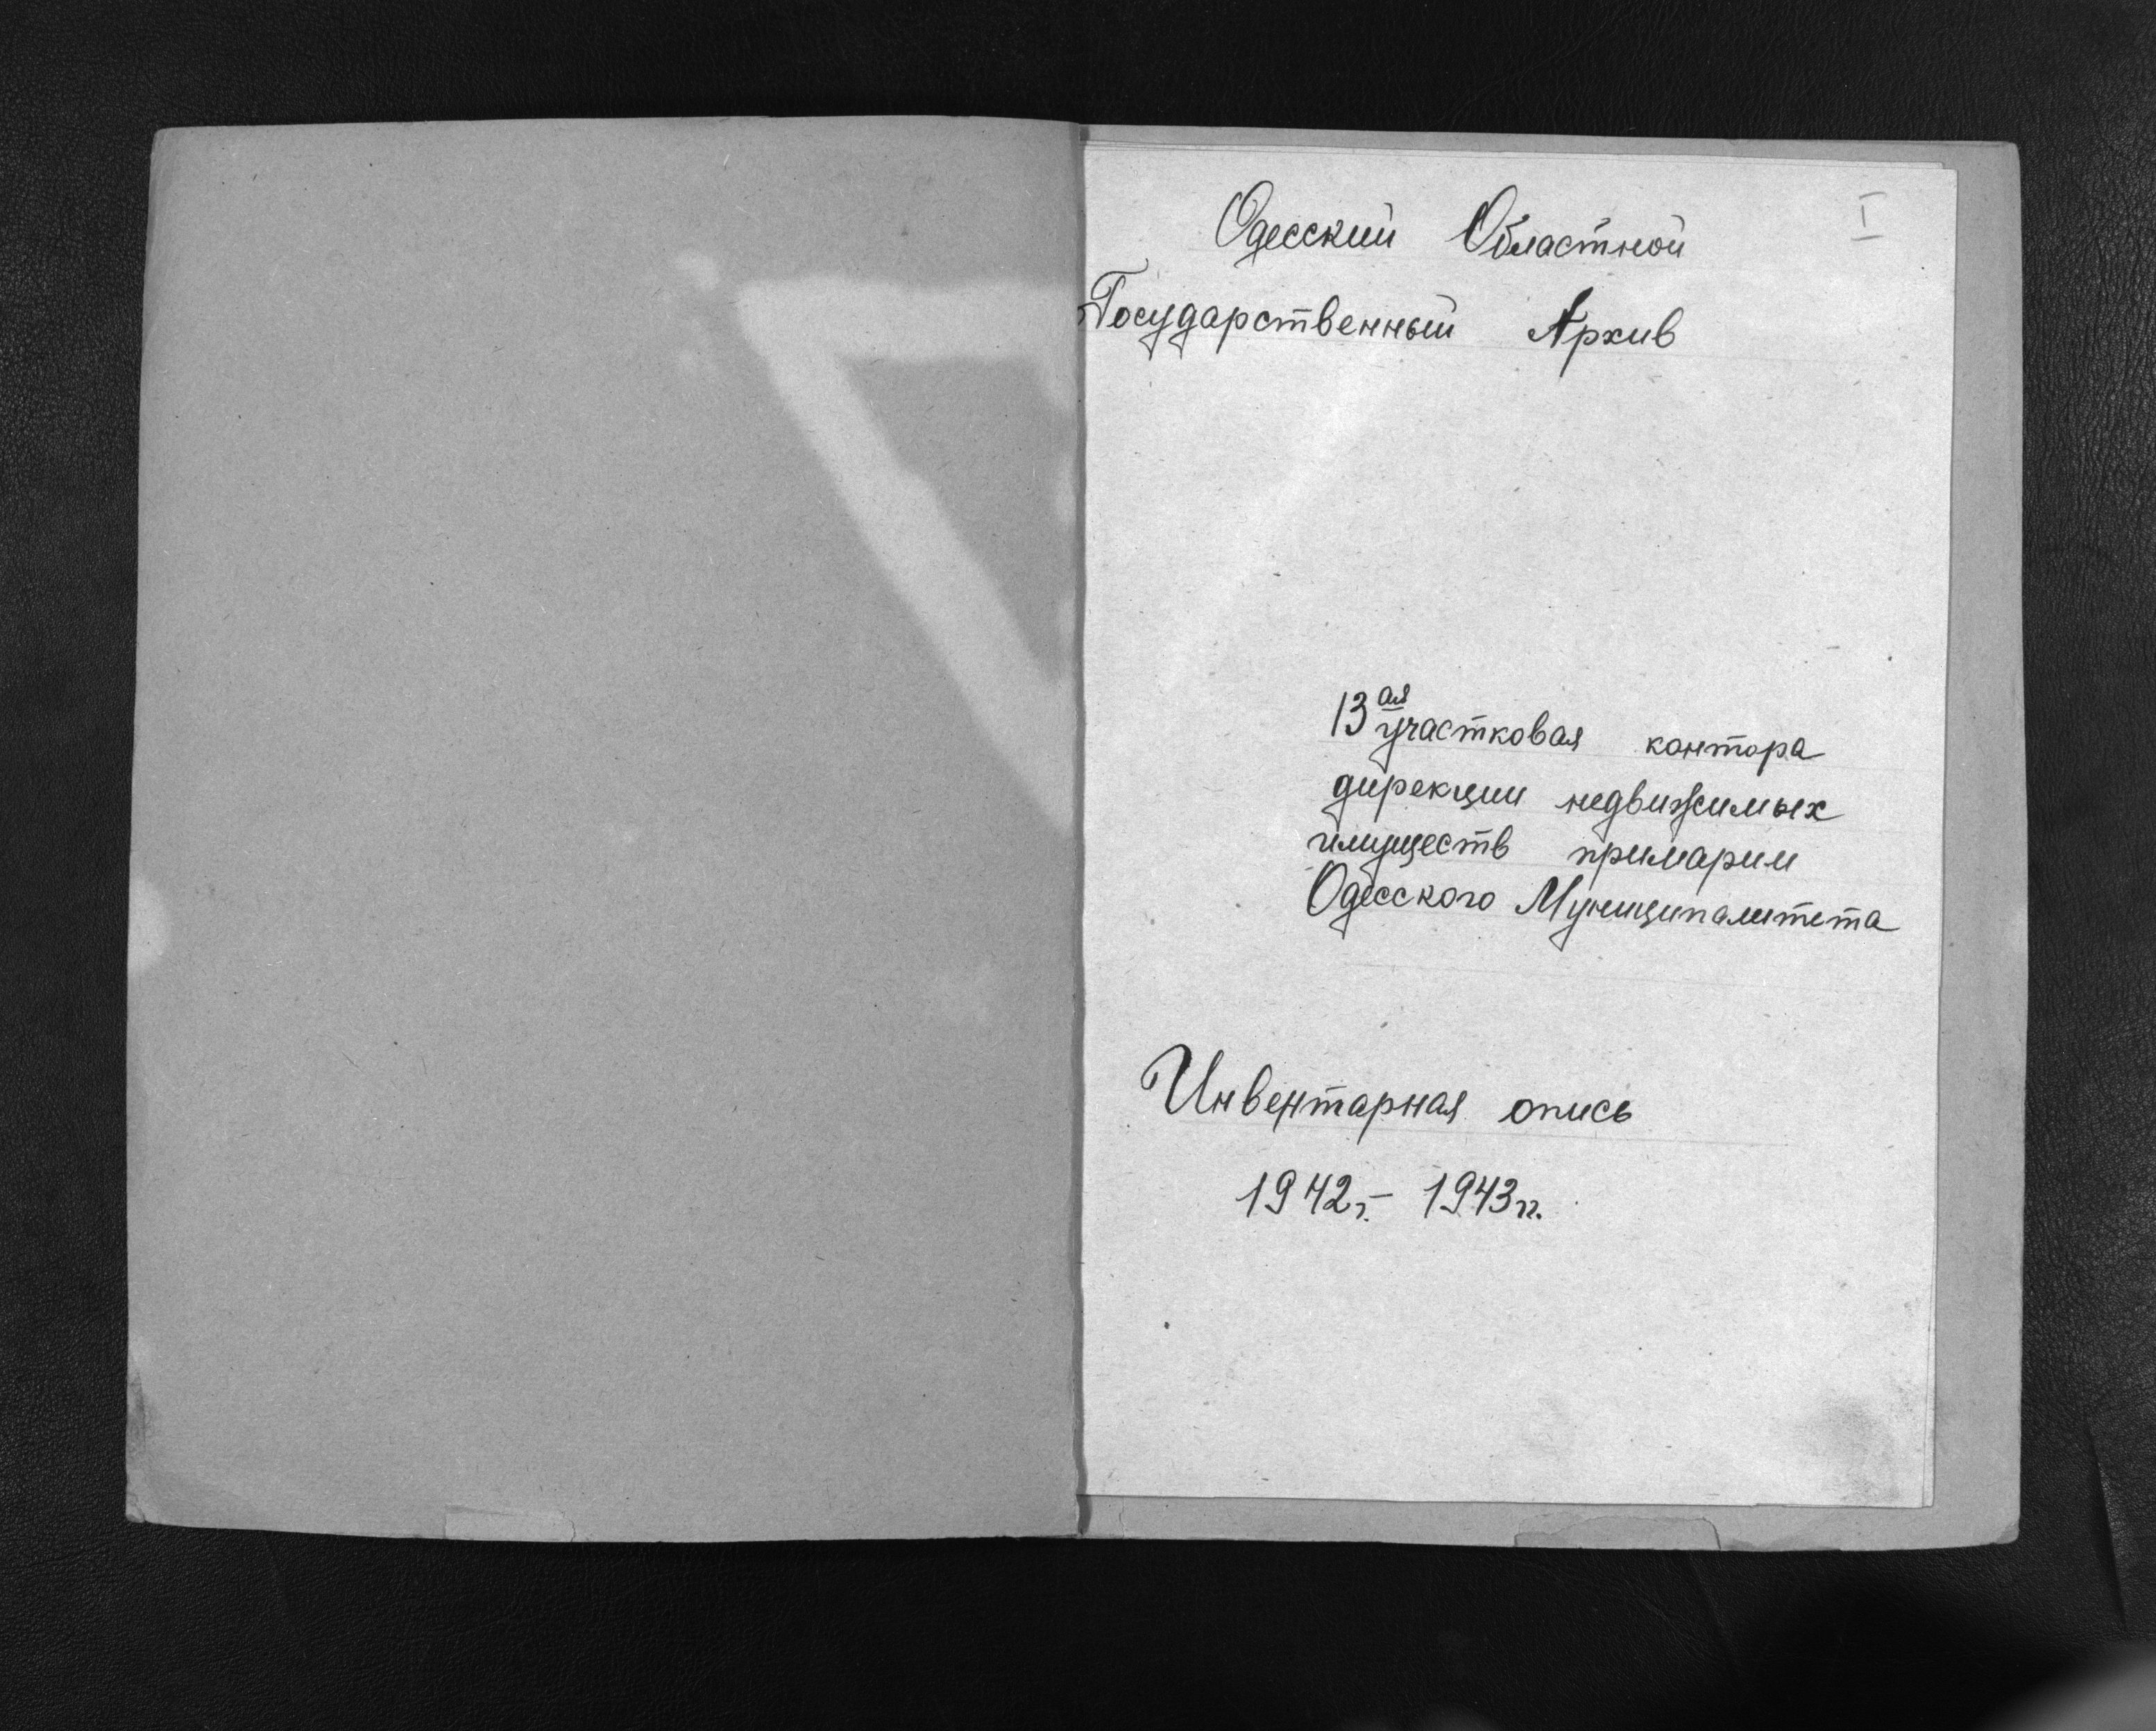 I
Одесский Областной
Государственный Архив
13ая участковая контора
дирекции недвижимых
имуществ примарии
Одесского Муниципалитета
Инвентарная опись
1942г. – 1943гг.